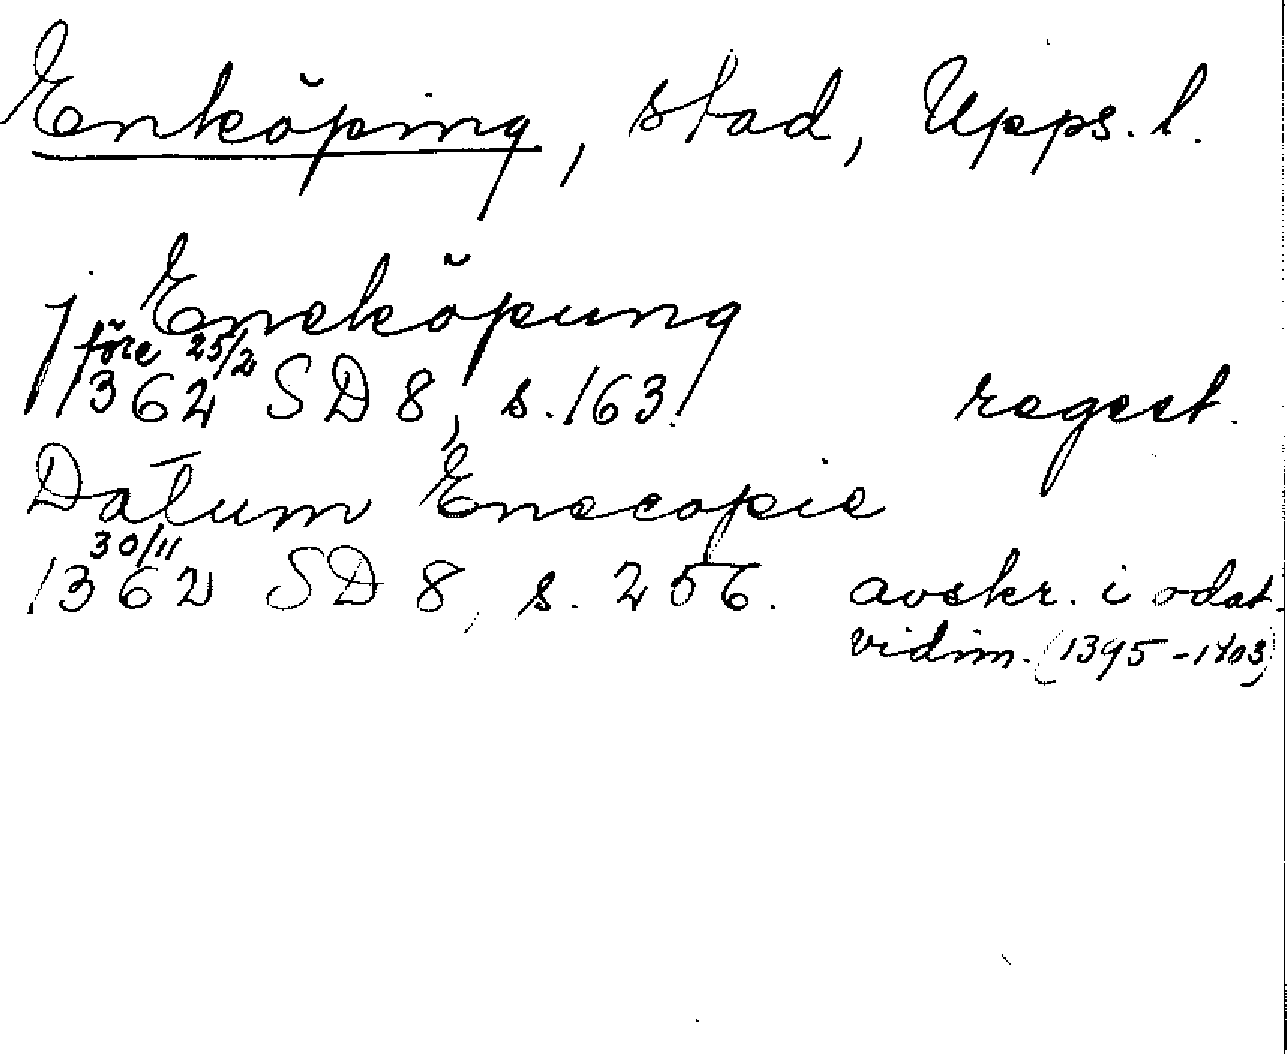 Enköping, stad, Upps. l.
j Eneköpung
före 25/2
1362 SD 8, s. 163. regest.
Datum Enecopie
30/11
1362 SD 8, s. 256. avskr. i odat.
vidim. (1395-1403)